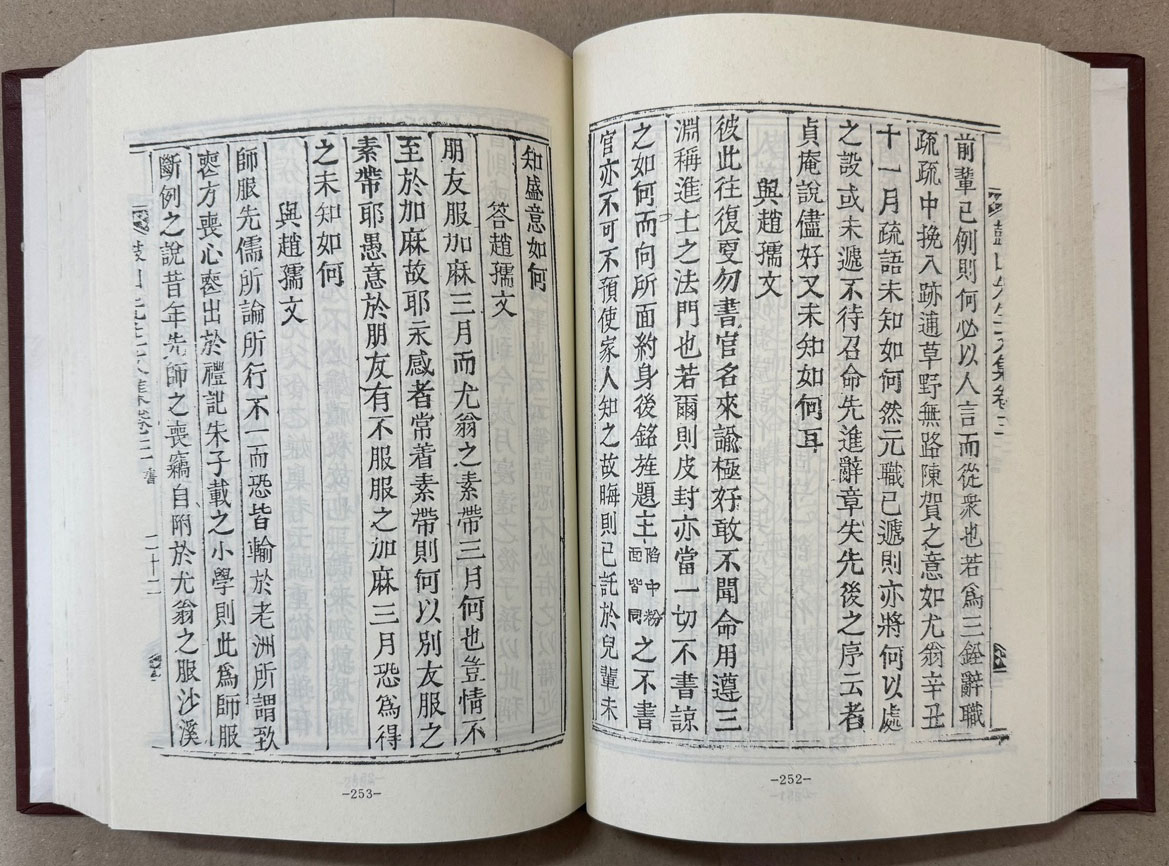 前輩已例則何必以人言而從衆也若爲三銓辭職
疏疏中挽入跡逋草野無路陳賀之意如尤翁辛丑
十一月疏語未知如何然元職已遞則亦將何以處
之設或未遞不待召命先進辭章失先後之序云者
貞庵說儘好又未知如何耳
與趙孺文
彼此往復更勿書官名來諭極好敢不聞命用遵三
淵稱進士之法門也若爾則皮封亦當一切不書諒
之如何而向所面約身後銘旌題主陷中粉面皆同之不書
官亦不可不預使家人知之故晦則已託於兒輩未
-252-
知盛意如何
答趙孺文
朋友服加麻三月而尤翁之素帶三月何也豈情不
至於加麻故耶永感者常着素帶則何以別友服之
素帶耶愚意於朋友有不服服之加麻三月恐爲得
之未知如何
與趙孺文
師服先儒所論所行不一而恐皆輸於老洲所謂致
喪方喪心喪出於禮記朱子載之小學則此爲師服
斷例之說昔年先師之喪竊自附於尤翁之服沙溪
書 二十二
-253-